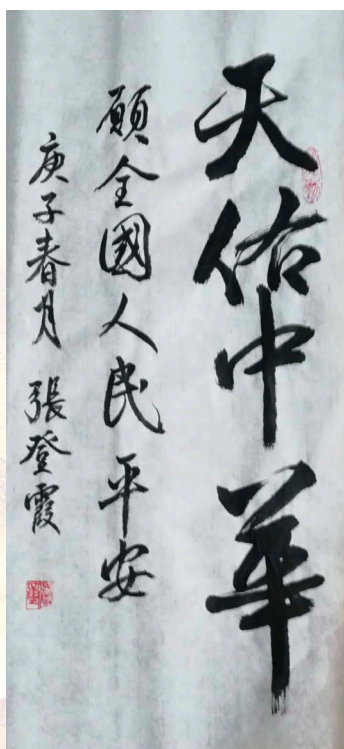 天佑中華
願全國人民平安
庚子春月 張登霞